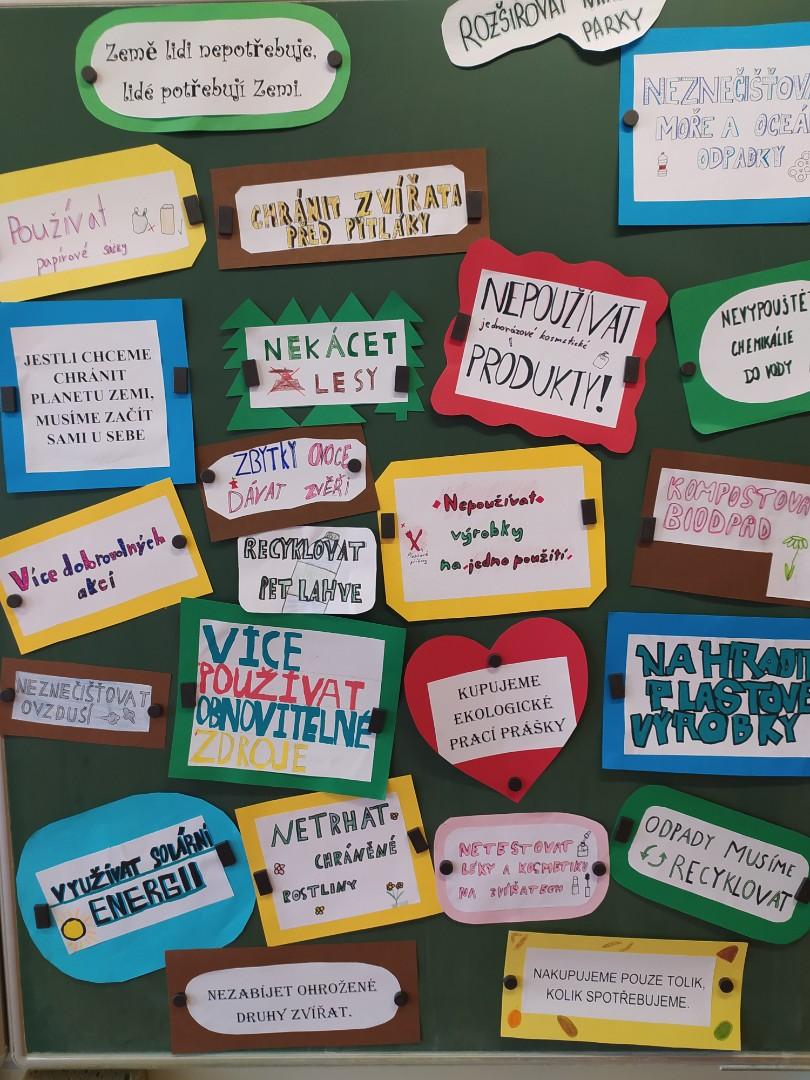 Země lidi nepotřebuje,
lidé potřebují Zemi.
ROZŠIROVAT
PARKY
NEZNEČIŠŤOV
MOŘE A OCEÁ
ODPADKY
Používat
papírové sáčky
CHRÁNIT ZVÍŘATA
PŘED PYTLÁKY
JESTLI CHCEME
CHRÁNIT
PLANETU ZEMI,
MUSÍME ZAČÍT
SAMI U SEBE
NEKÁCET
LESY
NEPOUŽÍVAT
jednorázové kosmetické
PRODUKTY!
NEVYPOUŠTĚT
CHEMIKÁLIE
DO VODY
ZBYTKY OVOCE
DÁVAT ZVĚŘI
Nepoužívat
výrobky
na jedno použití
KOMPOSTOVA
BIODPAD
Více dobrovolných
akcí
RECYKLOVAT
PET LAHVE
VÍCE
POUŽÍVAT
OBNOVITELNÉ
ZDROJE
KUPUJEME
EKOLOGICKÉ
PRACÍ PRÁŠKY
NAHRADIT
PLASTOVÉ
VÝROBKY
NEZNEČIŠŤOVAT
OVZDUŠÍ
VYUŽÍVAT SOLÁRNÍ
ENERGII
NETRHAT
CHRÁNĚNÉ
ROSTLINY
NETESTOVAT
LÉKY A KOSMETIKU
NA ZVÍŘATECH
ODPADY MUSÍME
RECYKLOVAT
NEZABÍJET OHROŽENÉ
DRUHY ZVÍŘAT.
NAKUPUJEME POUZE TOLIK,
KOLIK SPOTŘEBUJEME.